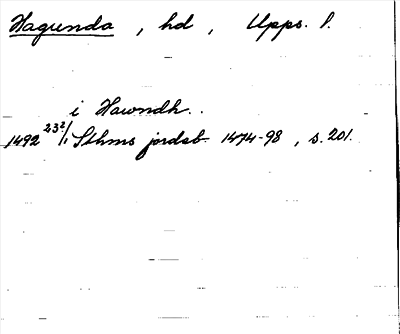 Hagunda , hd , Upps. l.
i Hawndh..
1492 23/1 Sthms jordeb 1474-98 , s. 201.